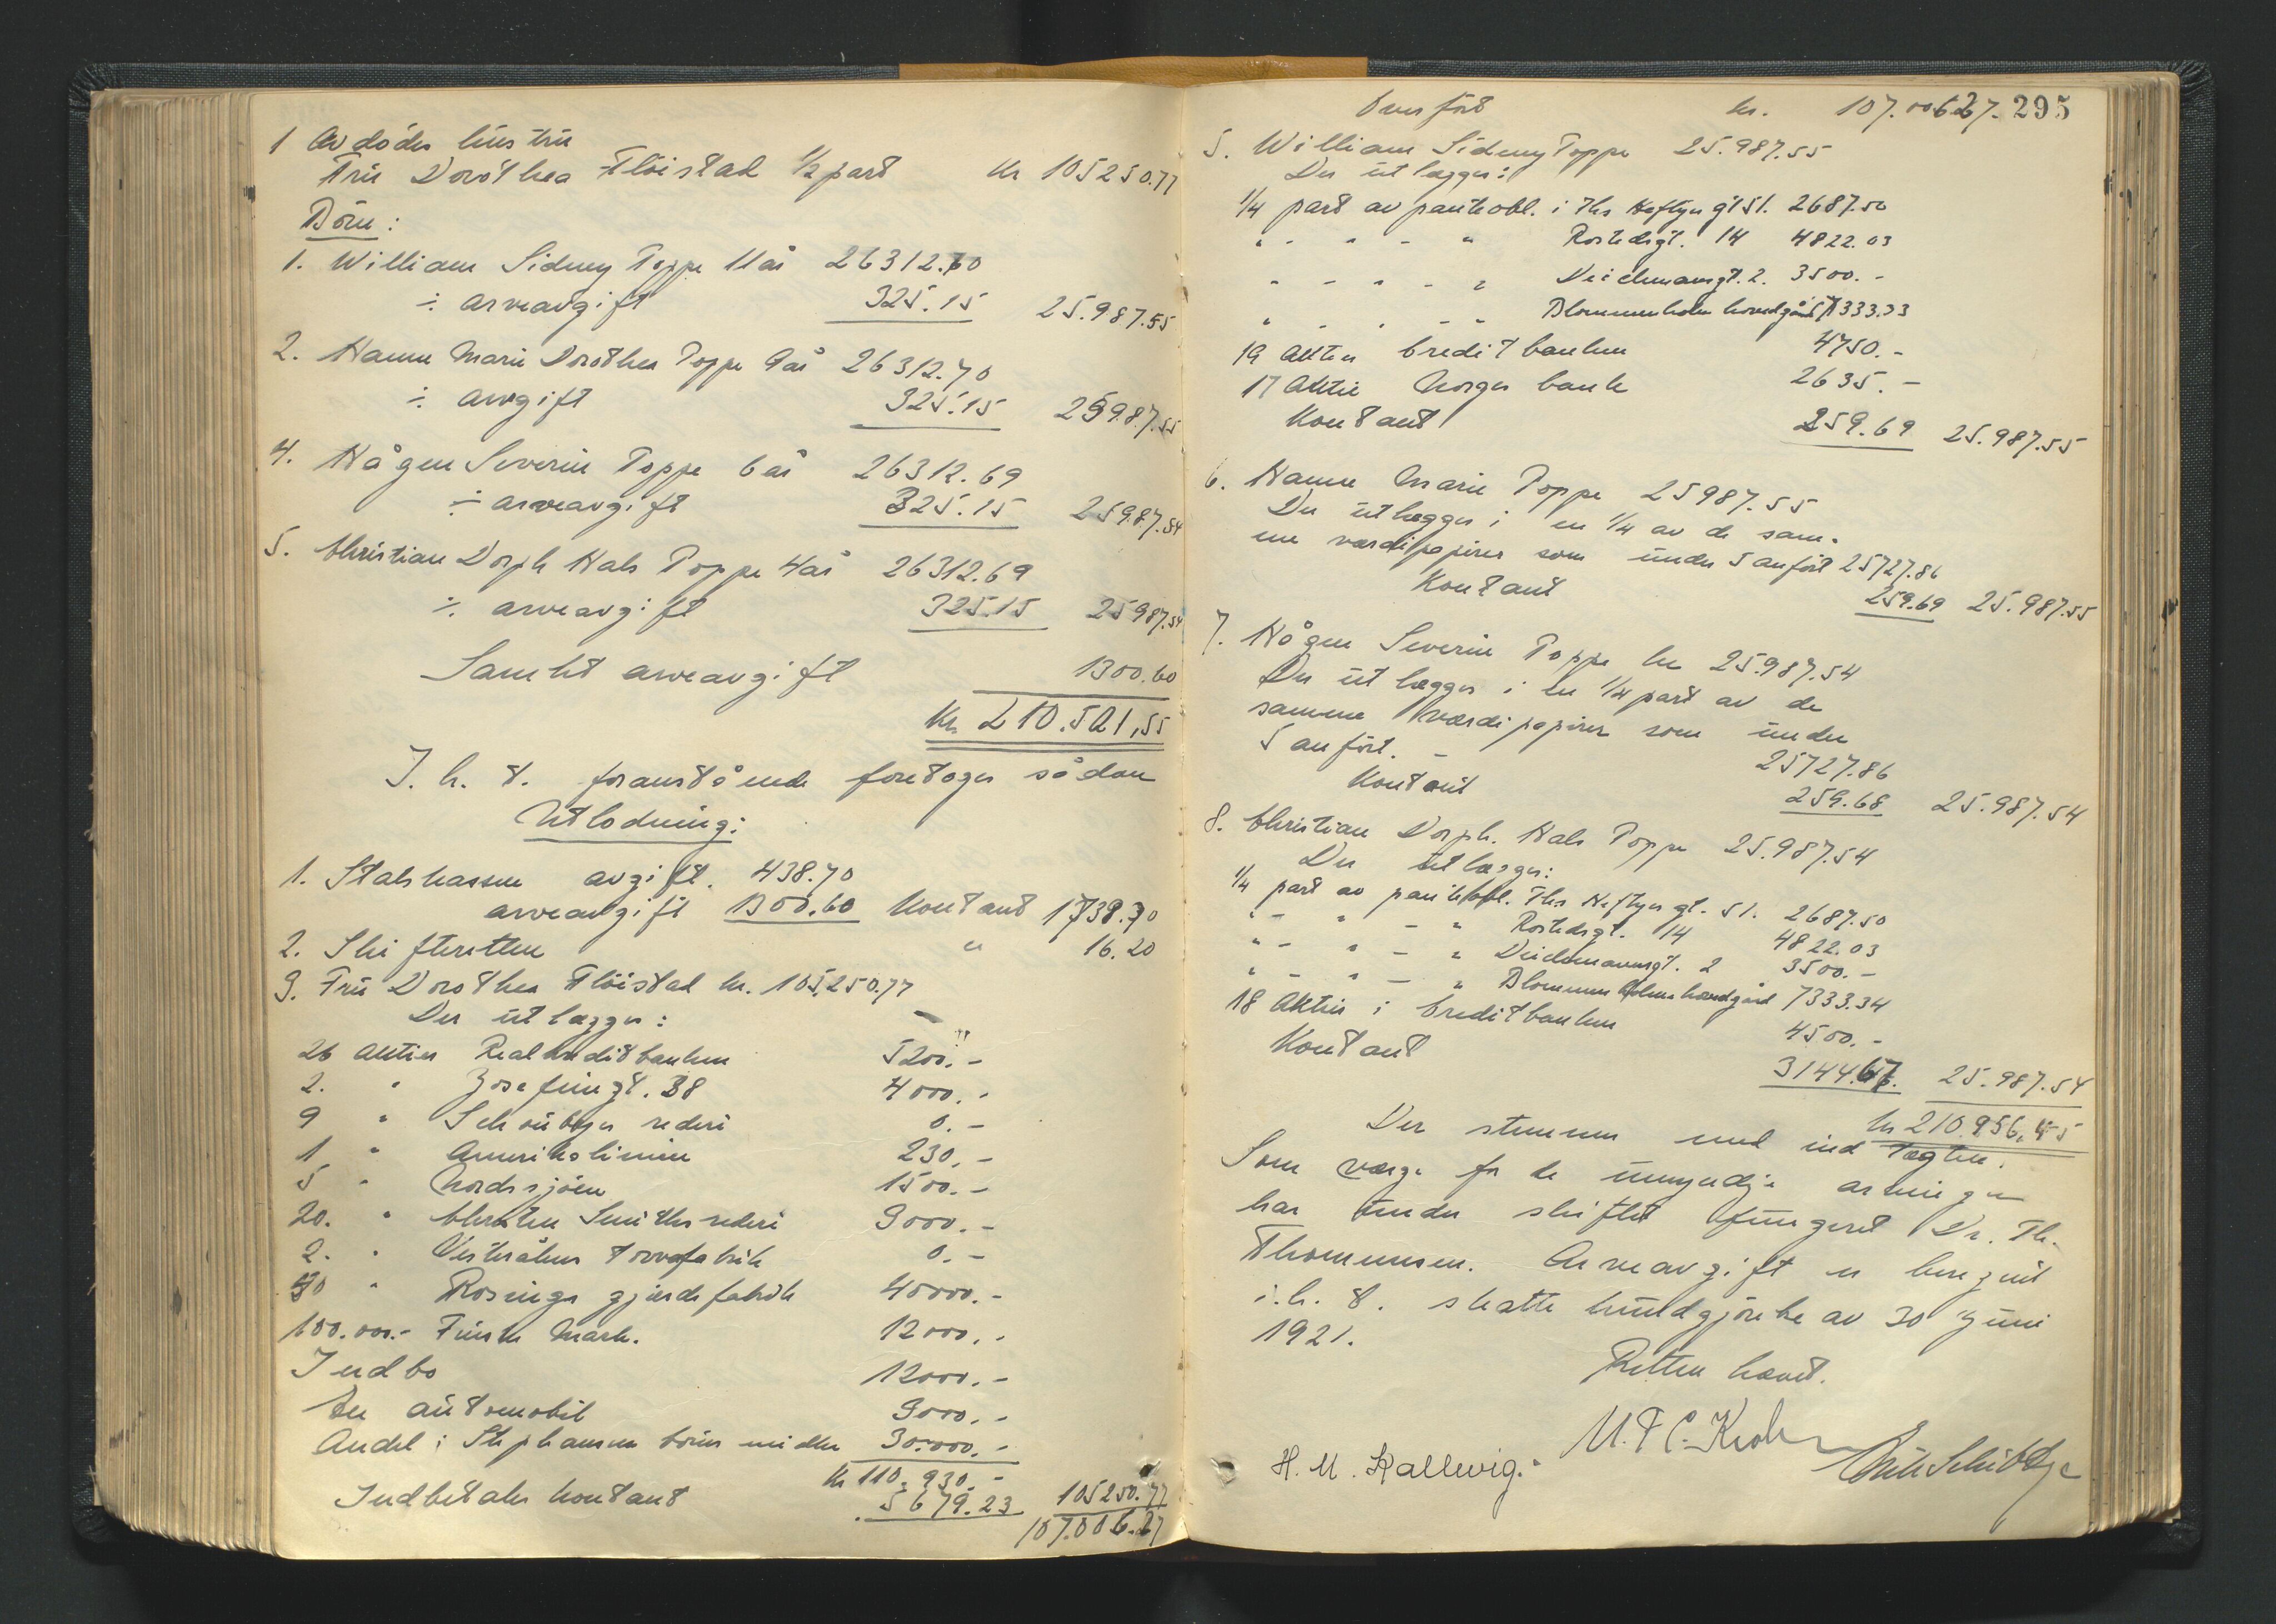 1 Avdödes hustru
Fru Dorothea Flöistad ½ part kr 105250.77
Börn:
1. William Sidney Toppe 11 år 26312.70
÷ arveavgift 325.15 25.987.55
2. Hanne Marie Dorothea Toppe 9 år 26312.70
÷ avgift 325.15 25987.55
4. Hågen Severin Toppe 6 år 26312.69
÷ arveavgift 325.15 25987.54
5. Christian Dorph Hals Toppe 4 år 26312.69
÷ arveavgift 325.15 25987.54
Samlet arveavgift 1300.60
Kr. 210.501,55
I. h. t. foranstående foretoges sådan
Utlodning:
1. Statskassen avgift. 438.70
arveavgift 1300.60 Kontant 1739.30
2. Skifteretten " 16.20
3. Fru Dorothea Flöistad kr. 105.250.77
Der utlægges:
26 Aktier Realkreditbanken 5200.-
2. " Josefinegt. 38 4000.-
9 " Schoubyes rederi 0.-
1 " Amerikalinien 230.-
5 " Nordsjöen 1500.-
20. " Christen Smiths rederi 3000.-
2. " Vesterålens torvfabrik 0.-
40 " Rosings gjærdefabrik 40000.-
100.000.- Finske Mark. 12000.-
Indbo 12000.-
En automobil 3000.-
Andel i Stephansens börns midler 30.000.-
kr 110.930.-
Indbetaler kontant 5679.23 105250.77
107.006.27
Overfört kr. 107.006.27. 295
5. William Sidney Toppe 25.987.55
Der utlægges:
1/4 part av panteobl. i Ths Heftyes gt 51. 2687.50
" - " - " Rostedsgt. 14 4822.03
" - " - " Deichmansgt. 2. 3500.-
" - " - " Blommenholm hovedgård 7333.33
19 Aktier Creditbanken 4750.-
17 Aktie Norges bank 2635.-
Kontant 259.69 25.987.55
6. Hanne Marie Toppe 25987.55
Der utlægges i en 1/4 av de sam-
me værdipapirer som under 5 anfört 25727.86
Kontant 259.69 25.987.55
7. Hågen Severin Toppe kr 25.987.54
Der utlægges i en 1/4 part av de
samme værdipapirer som under
5 anfört. - 25727.86
Kontant 259.68 25.987.54
8. Christian Dorph. Hals Toppe 25.987.54
Der utlægges:
1/4 part av panteobl. Ths. Heftyes gt. 51. 2687.50
" - " - " Rostedsgt. 14 4822.03
" - " - " Deichmannsgt. 2 3500.-
" - " - " Blommenholms hovedgård 7333.34
18 Aktier i Creditbanken 4500.-
Kontant 3144.67. 25.987.54
kr 210.956,45
Der stemmer med indtægten.
Som værge for de umyndige arvinger
har under skiftet fungeret Dr. Th.
Thommesen. Arveavgift er beregnet
i.h.t. skatte kundgjörelse av 30 juni
1921.
Retten hævet.
H. M. Kallevig.